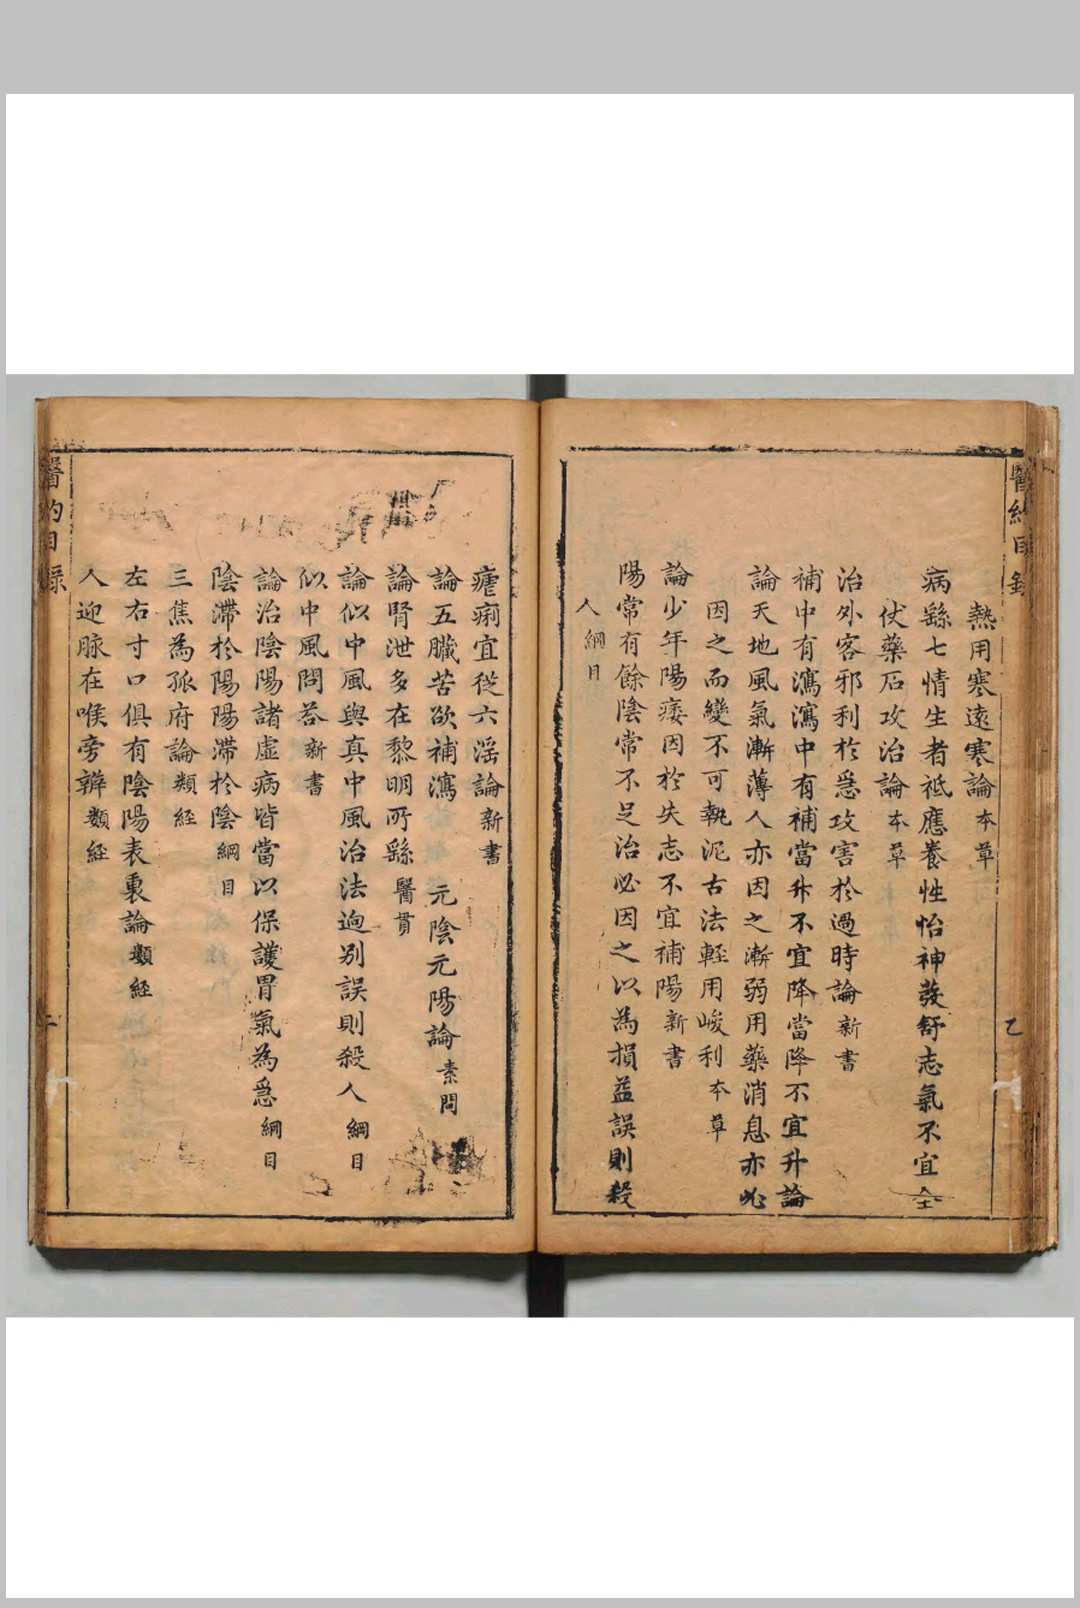 熱用寒遠寒論本草
病繇七情生者祗應養性怡神發舒志氣不宜全
仗藥石攻治論本草
治外客邪利於急攻害於過時論新書
補中有瀉瀉中有補當升不宜降當降不宜升論
論天地風氣漸薄人亦因之漸弱用藥消息亦必
因之而變不可執泥古法輕用峻利本草
論少年陽痿因於失志不宜補陽新書
陽常有餘陰常不足治必因之以為損益誤則殺
人綱目
瘧痢宜從六淫論新書
論五臟苦欲補瀉 元陰元陽論素問
論腎泄多在黎明所繇醫貫
論似中風與真中風治法迥別誤則殺人綱目
似中風問荅新書
論治陰陽諸虛病皆當以保護胃氣為急綱目
陰滯於陽陽滯於陰綱目
三焦為孤府論類経
左右寸口俱有陰陽表裏論類経
人迎脉在喉旁辨類経
醫約目錄